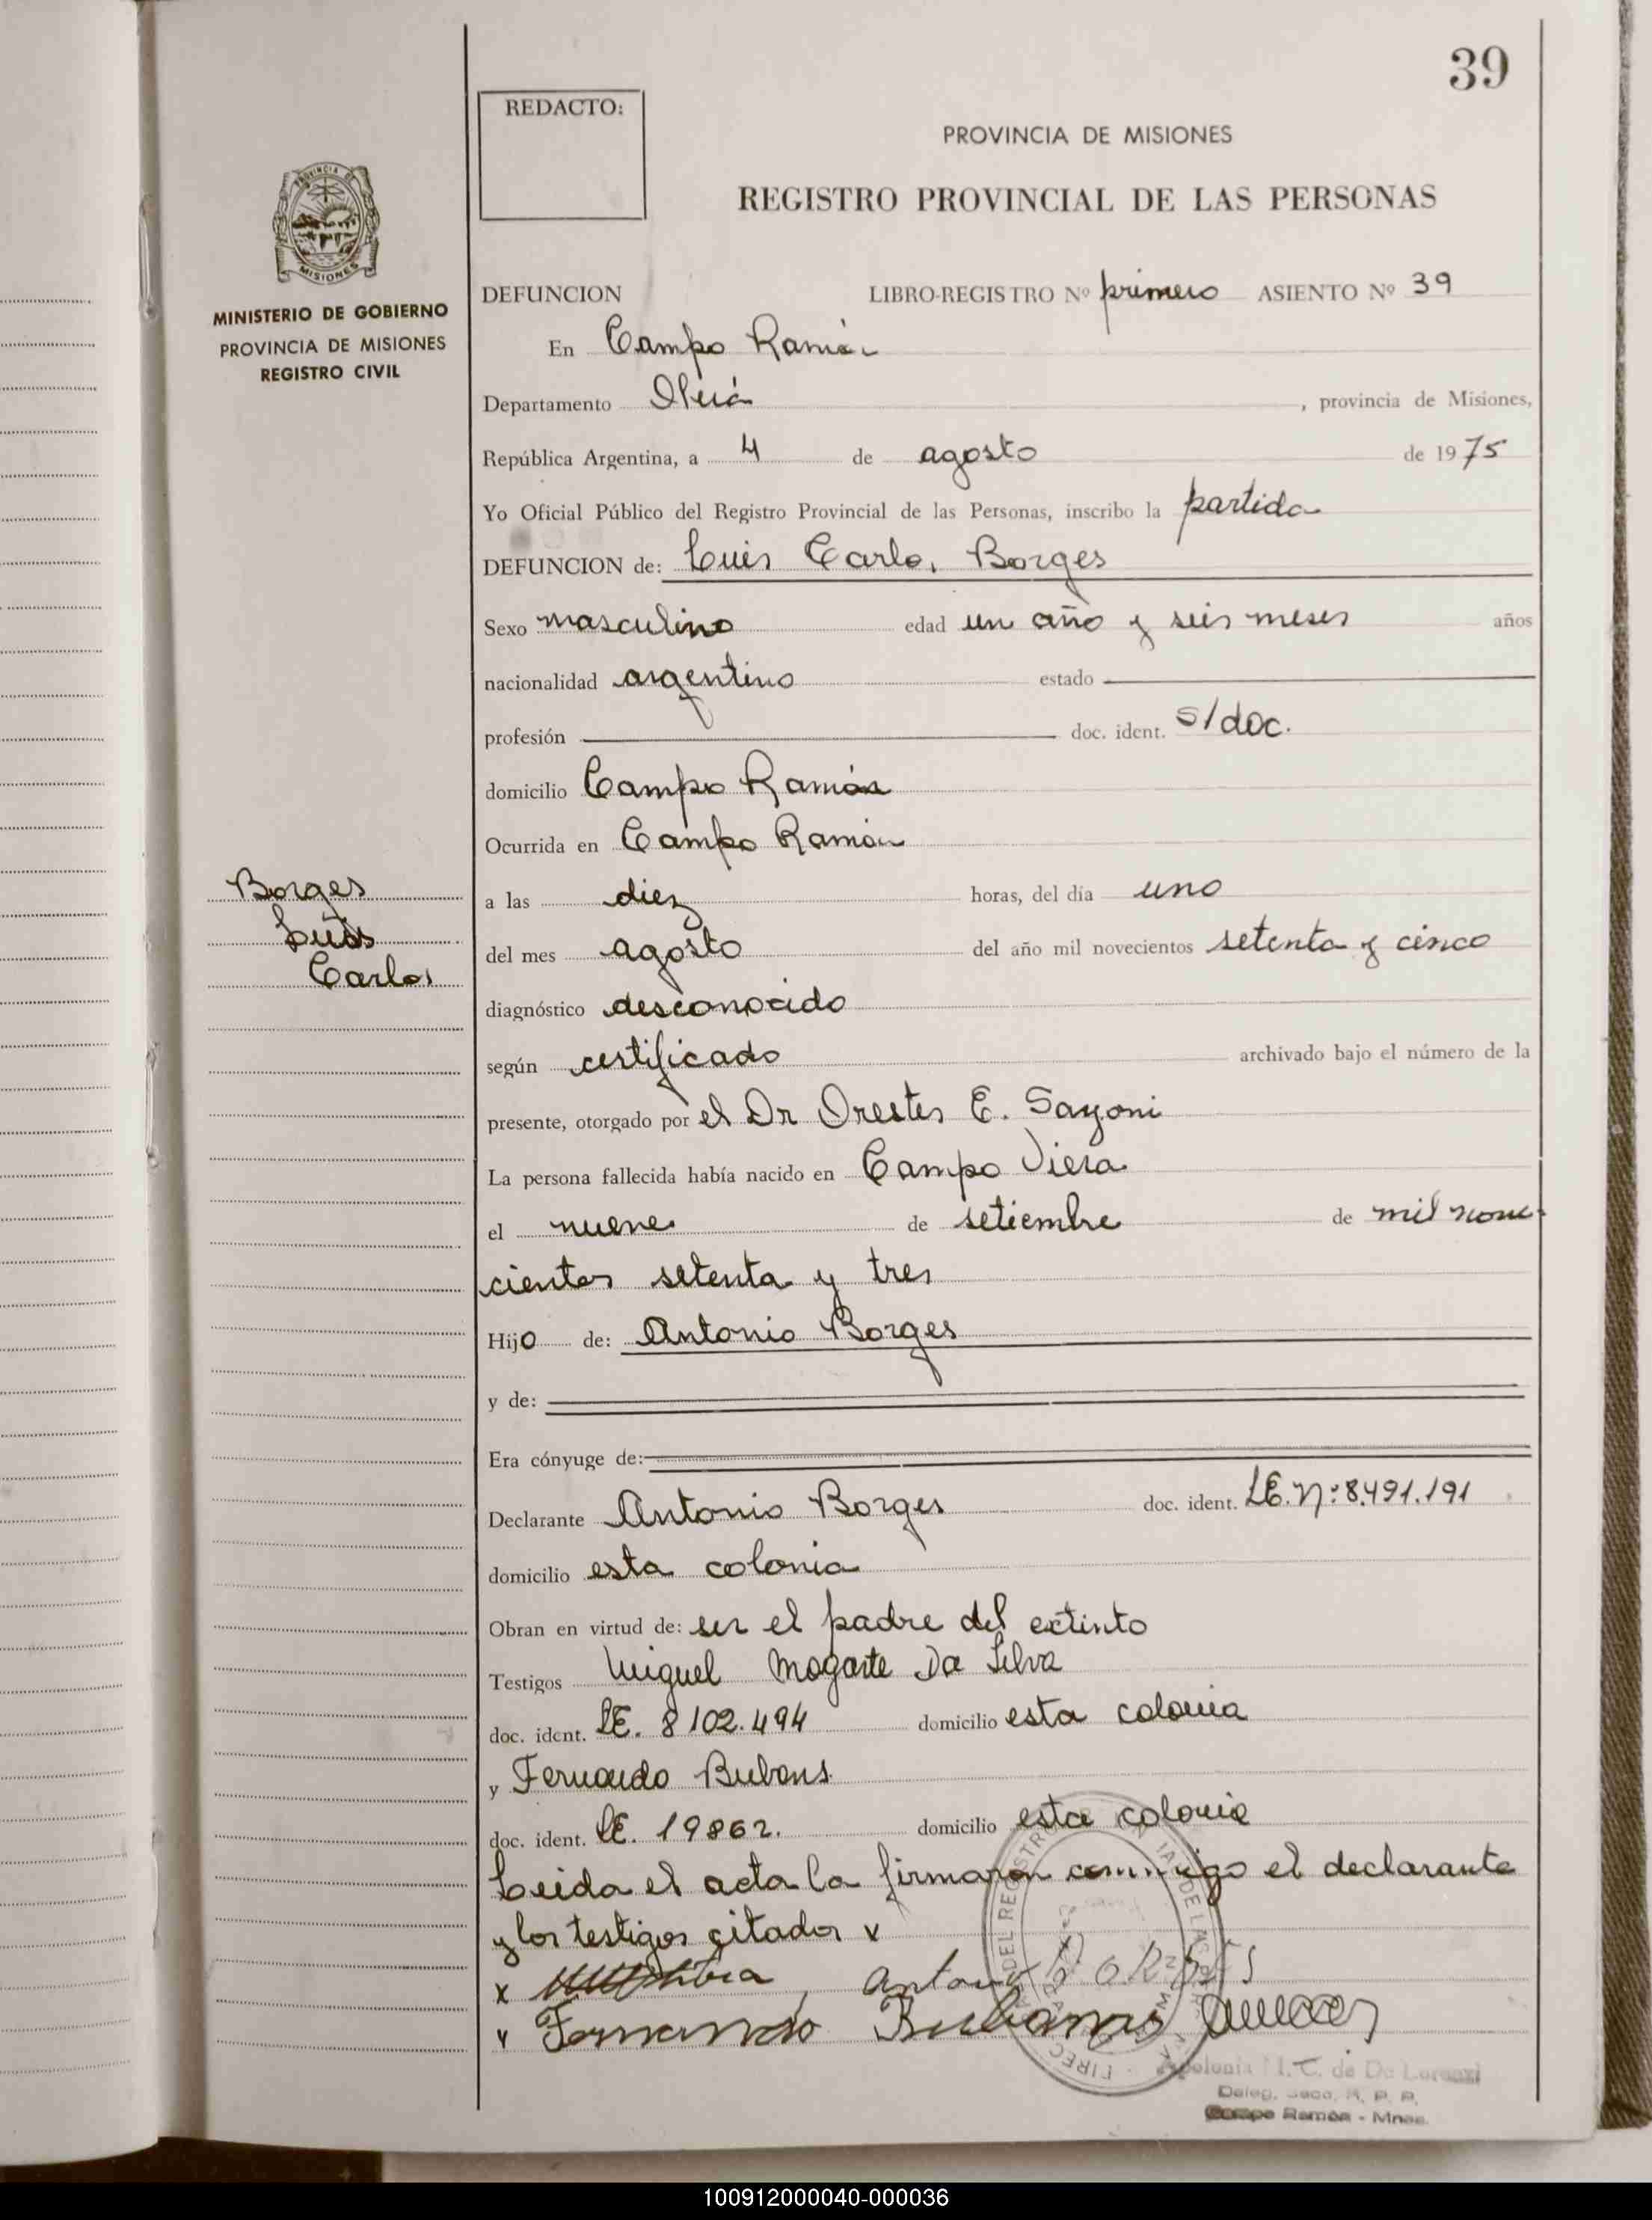 39
REDACTO:
PROVINCIA DE MISIONES
REGISTRO PROVINCIAL DE LAS PERSONAS
PROVINCIA DE
MISIONES
MINISTERIO DE GOBIERNO
PROVINCIA DE MISIONES
REGISTRO CIVIL
DEFUNCION LIBRO-REGISTRO Nº primero ASIENTO Nº 39
En Campo Ramón
Departamento Oberá, provincia de Misiones,
República Argentina, a 4 de agosto de 1975
Yo Oficial Público del Registro Provincial de las Personas, inscribo la partida
DEFUNCION de: Luis Carlos Borges
Sexo masculino edad un año y seis meses años
nacionalidad argentino estado
profesión doc. ident. S/doc.
domicilio Campo Ramón
Ocurrida en Campo Ramón
Borges
Luis
Carlos
a las diez horas, del día uno
del mes agosto del año mil novecientos setenta y cinco
diagnóstico desconocido
según certificado archivado bajo el número de la
presente, otorgado por el Dr Orestes E. Sayoni
La persona fallecida había nacido en Campo Viera
el nueve de setiembre de mil nove-
cientos setenta y tres
Hijo de: Antonio Borges
y de:
Era cónyuge de:
Declarante Antonio Borges doc. ident. LE.N:8.491.191
domicilio esta colonia
Obran en virtud de: ser el padre del extinto
Testigos Miguel Mogarte Da Silva
doc. ident. LE. 8102.494 domicilio esta colonia
y Fernando Bubans
doc. ident. LE. 19862. domicilio esta colonia
Leida el acta la firmaron conmigo el declarante
y los testigos citados x
x Antonio Borges
y Fernando Bubans
Apolonia I. C. de De Lorenzi
Deleg. Secc. R. P. P.
Campo Ramón - Mnes.
100912000040-000036